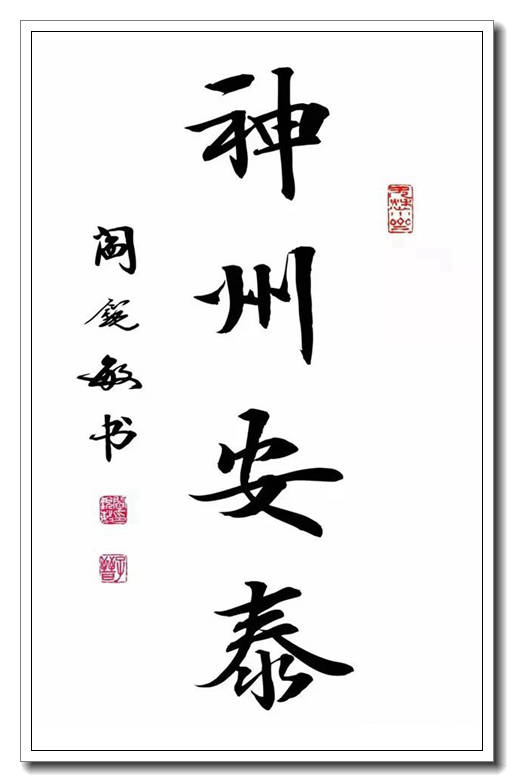 神州安泰
阎锐敏书